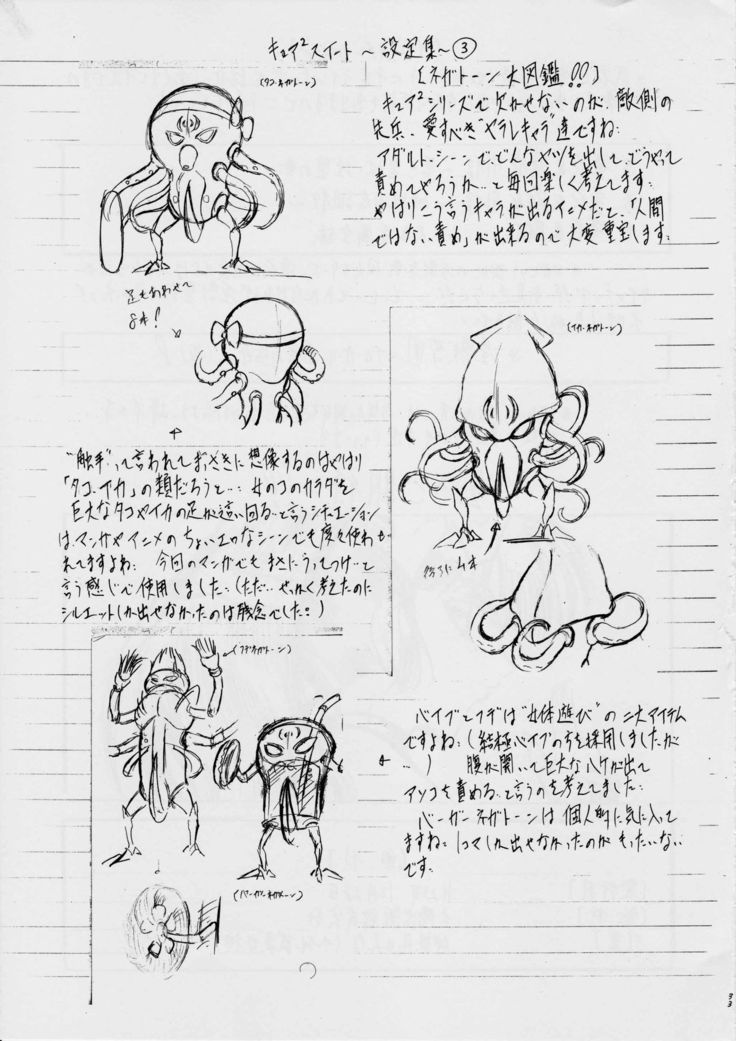 キュア²スイート 〜設定集〜③
(タコ・ネガトーン)
[ネガトーン大図鑑!!]
キュア²シリーズで欠かせないのが、敵側の
先兵、愛すべき“ヤラレキャラ”達ですね:
アダルト・シーンでどんなヤツを出して、どうやって
責めてやろうか…と毎回楽しく考えてます:
やはりこう言うキャラが出るアニメだと、「人間
ではない責め」が出来るので大変重宝します:
足もあわせて
8本!
(イカ・ネガトーン)
“触手”って言われてまっさきに想像するのはやはり
「タコ・イカ」の類だろうと…: 女のコのカラダを
巨大なタコやイカの足が這い回る…と言うシチュエーション
は、マンガやアニメのちょいエロなシーンでも度々使われ
れてますよね: 今回のマンガでもまさにうってつけ…と
言う感じで使用しました:(ただ…せっかく考えたのに
シルエットしか出せなかったのは残念でした:)
(フデ・ネガトーン)
バイブとフデは“女体遊び”の二大アイテム
ですよね:(結極バイブの方を採用しましたが
…) 腹が開いて巨大なハケが出て
アソコを責める…と言うのを考えてました:
バーガーネガトーンは個人的に気に入って
ますね: 1コマしか出せなかったのがもったいない
です:
(バーガー・ネガトーン)
33